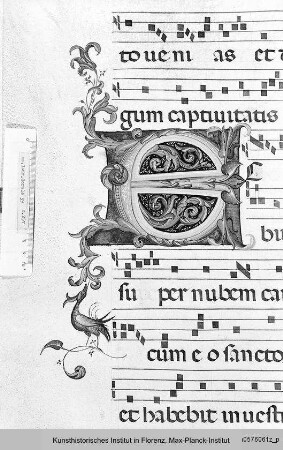 to ue ni as et
gum captivitatis
E c
bu
su per nubem can
cum e o sancto
et habebit in vesti
Kunsthistorisches Institut in Florenz, Max-Planck-Institut